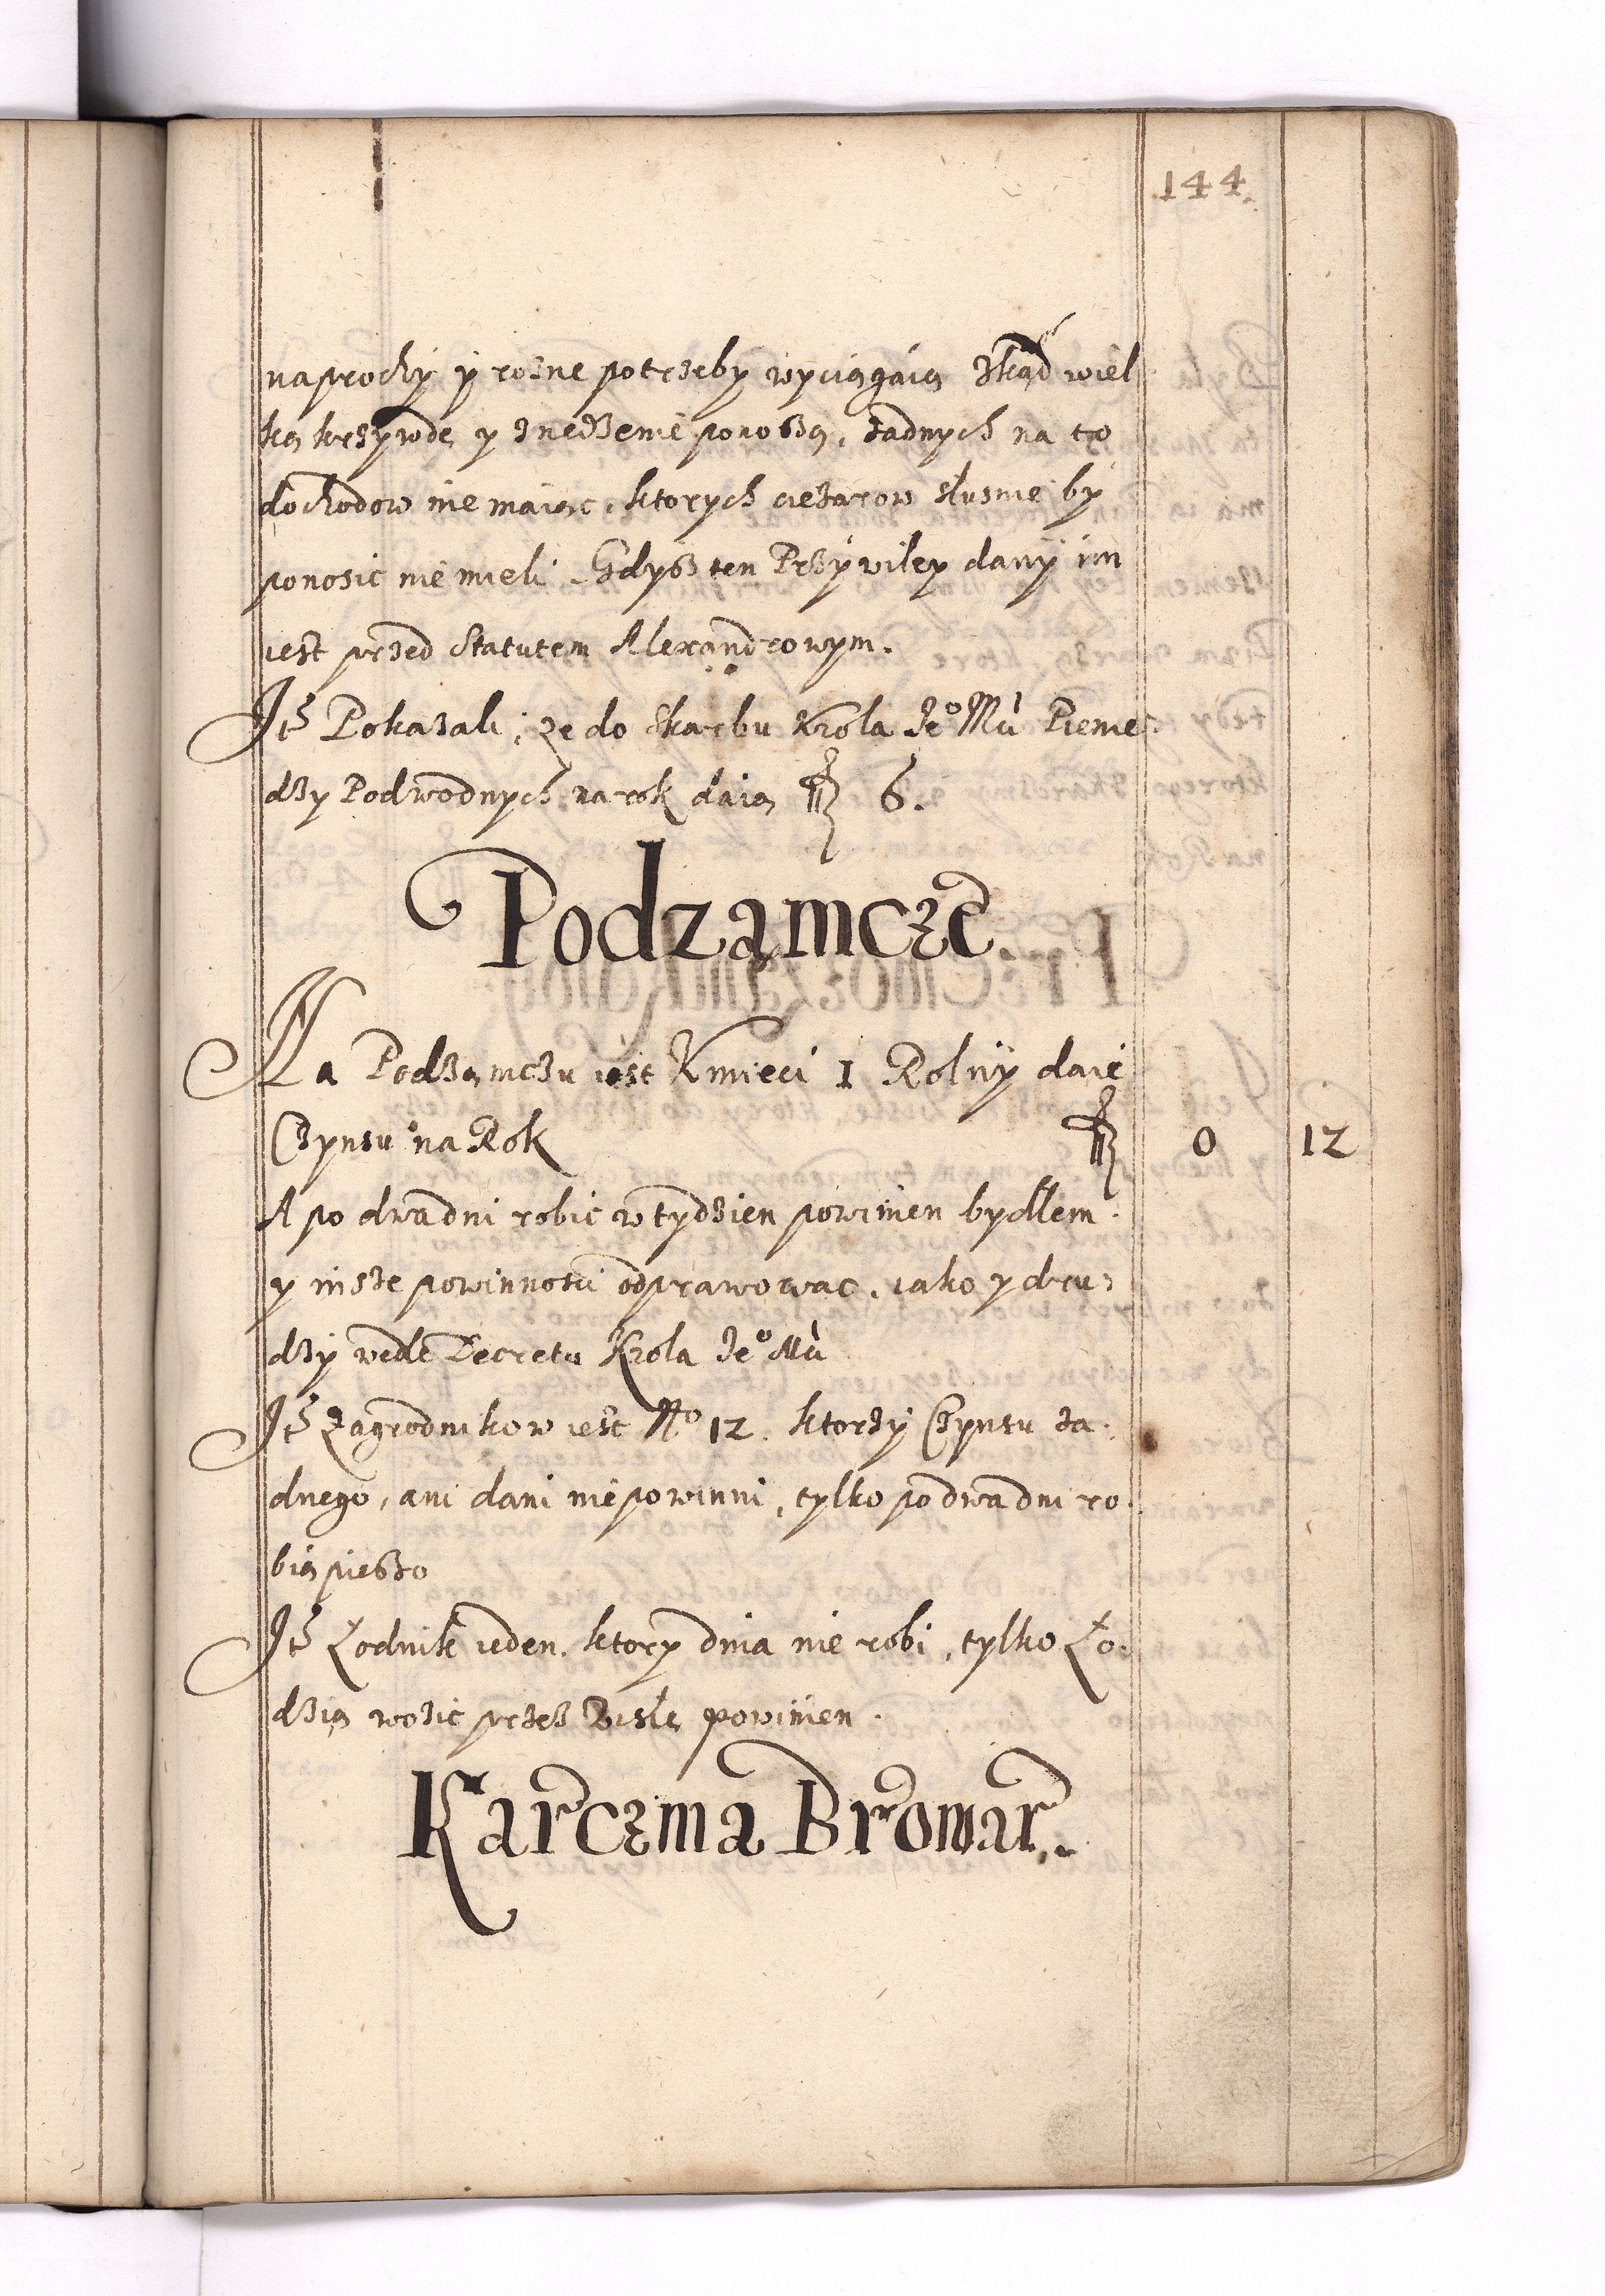 144.
na prochy y rozne potrzeby wyciągáią zkąd wiel
ką krzywdę y znędzenie ponoszą, żadnych na to
dochodow nie maiąc, ktorych cięzarow słusnie by
ponosic nie mieli. Gdysz ten Przywiley dany im
iest przed Statutem Alexandrowym.
Itẽ Pokazali, ze do skarbu Krola Jeº Mći Pienię:
dzy Podwodnych na rok daią fl 6.
Podzamcze
Na Podzamczu iest Kmieci 1 Rolny daie
Czynsu na Rok fl 0 12
A po dwa dni robic w tydzien powinien bydłem.
y insze powinnosci odprawowac, iako y dru:
dzy wedle Decretu Krola Jeº Mći
Itẽ Zagrodnikow iest Nº 12. ktorzy Czynsu za:
dnego, ani dani nie powinni, tylko po dwa dni ro:
bią pieszo
Itẽ Łodnik ieden, ktory dnia nie robi, tylko Ło:
dzią wozic przez Wisłę powinien.
Karczma Browar.